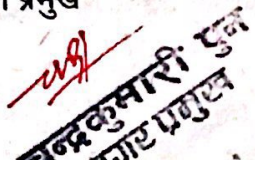 प्रमुख
चन्द्रकुमारी पुन
नगर प्रमुख